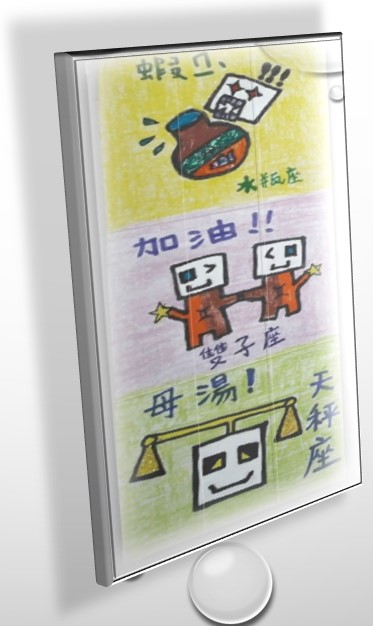 蝦
!!!
水瓶座
加油!!
雙子座
母湯!
天秤座